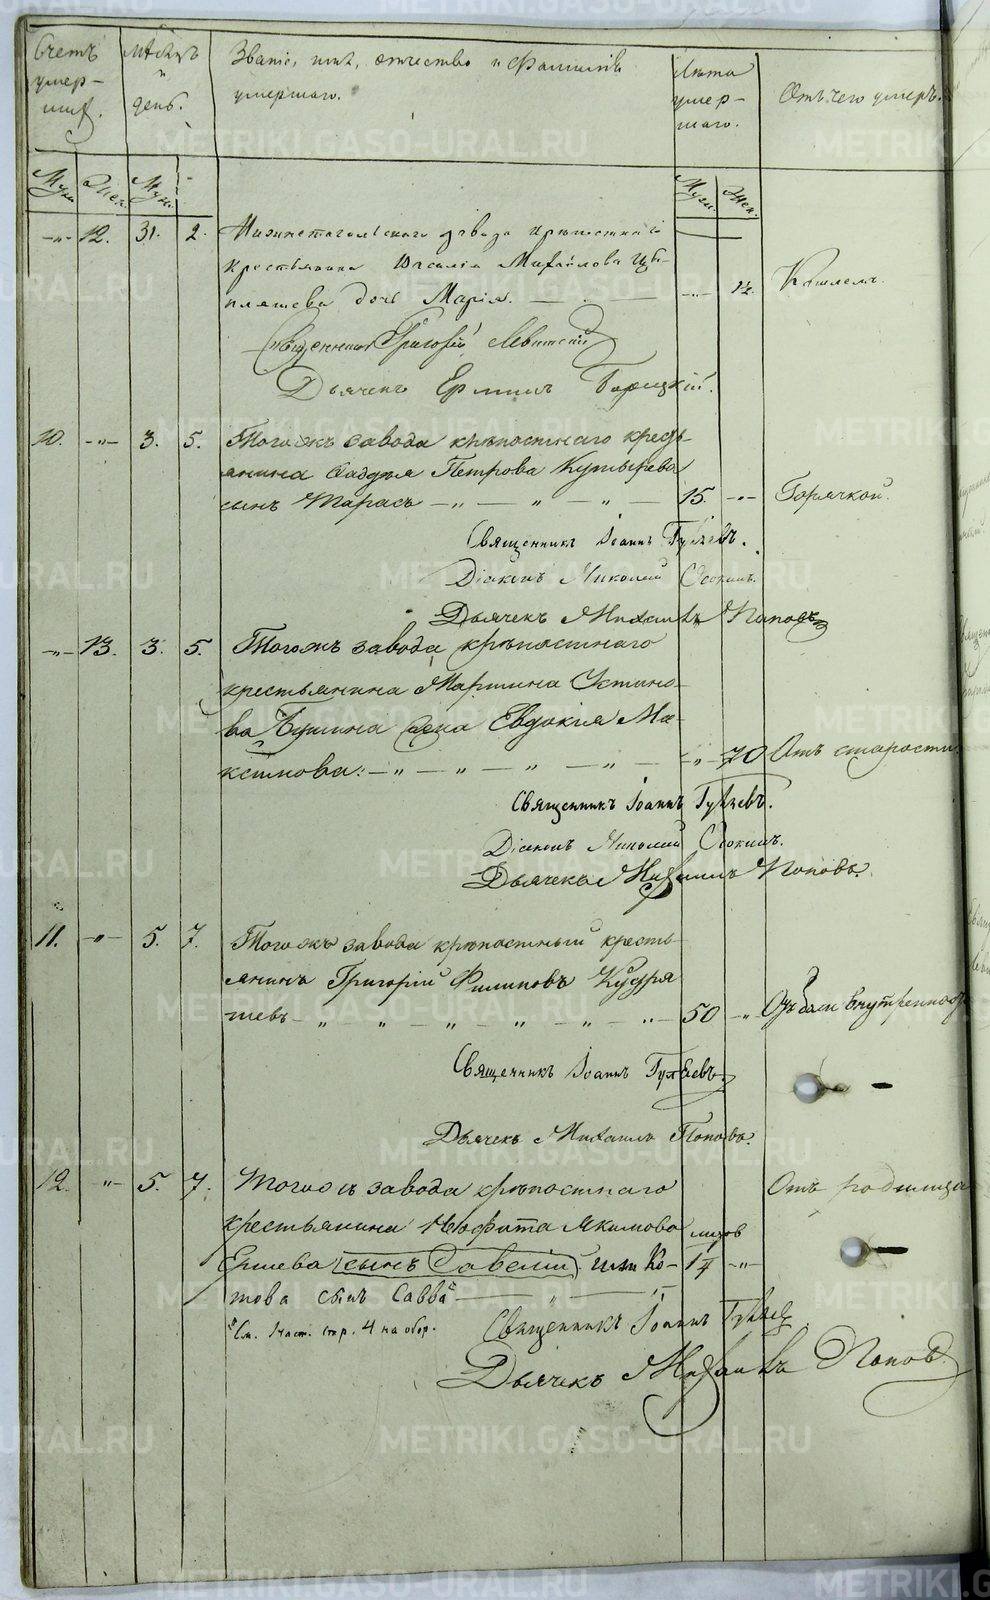 Счетъ умер-шихъ.
Мѣсяцъ и день.
Званіе, имя, отчество и фамилія умершаго.
Лѣта умер-шаго.
Отъ чего умеръ.
Муж. Жен. Муж.
Муж. Жен.
-"- 12. 31. 2. Нижнетагильскаго завода
крестьянина Василія Михайлова Цы-
плятева дочь Марія. -"- Кашлемъ.
Священникъ Григорій Левитскій
Дьячекъ Ермилъ
10. -"- 3. 5. Тогожъ завода крѣпостнаго кресть-
янина Фаддѣя Петрова Кутырева
сынъ Тарасъ -"- 15. -"- Горячкой.
Священникъ Іоаннъ
Діаконъ Николай
Дьячекъ Михаилъ Поповъ
-"- 13. 3. 5. Тогожъ завода крѣпостнаго
крестьянина Мартина Устино-
ва жена Евдокія Ма-
ксимова. -"- 70 Отъ старости.
Священникъ Іоаннъ
Діаконъ Николай
Дьячекъ Михаилъ Поповъ.
11. -"- 5. 7. Тогожъ завода крѣпостный кресть-
янинъ Григорій Филиповъ Кудря
шевъ -"- 50 -"- Отъ боли внутренностей
Священникъ Іоаннъ
Дьячекъ Михаилъ Поповъ.
12. -"- 5. 7. Тогожъ завода крѣпостнаго Отъ родимца
крестьянина Якимова
Ершева сынъ Савелій или Ко- -"-
това сынъ Савва
См. 1 част. стр. 4 на обор.
Священникъ Іоаннъ
Дьячекъ Михаилъ Поповъ
METRIKI.GASO-URAL.RU